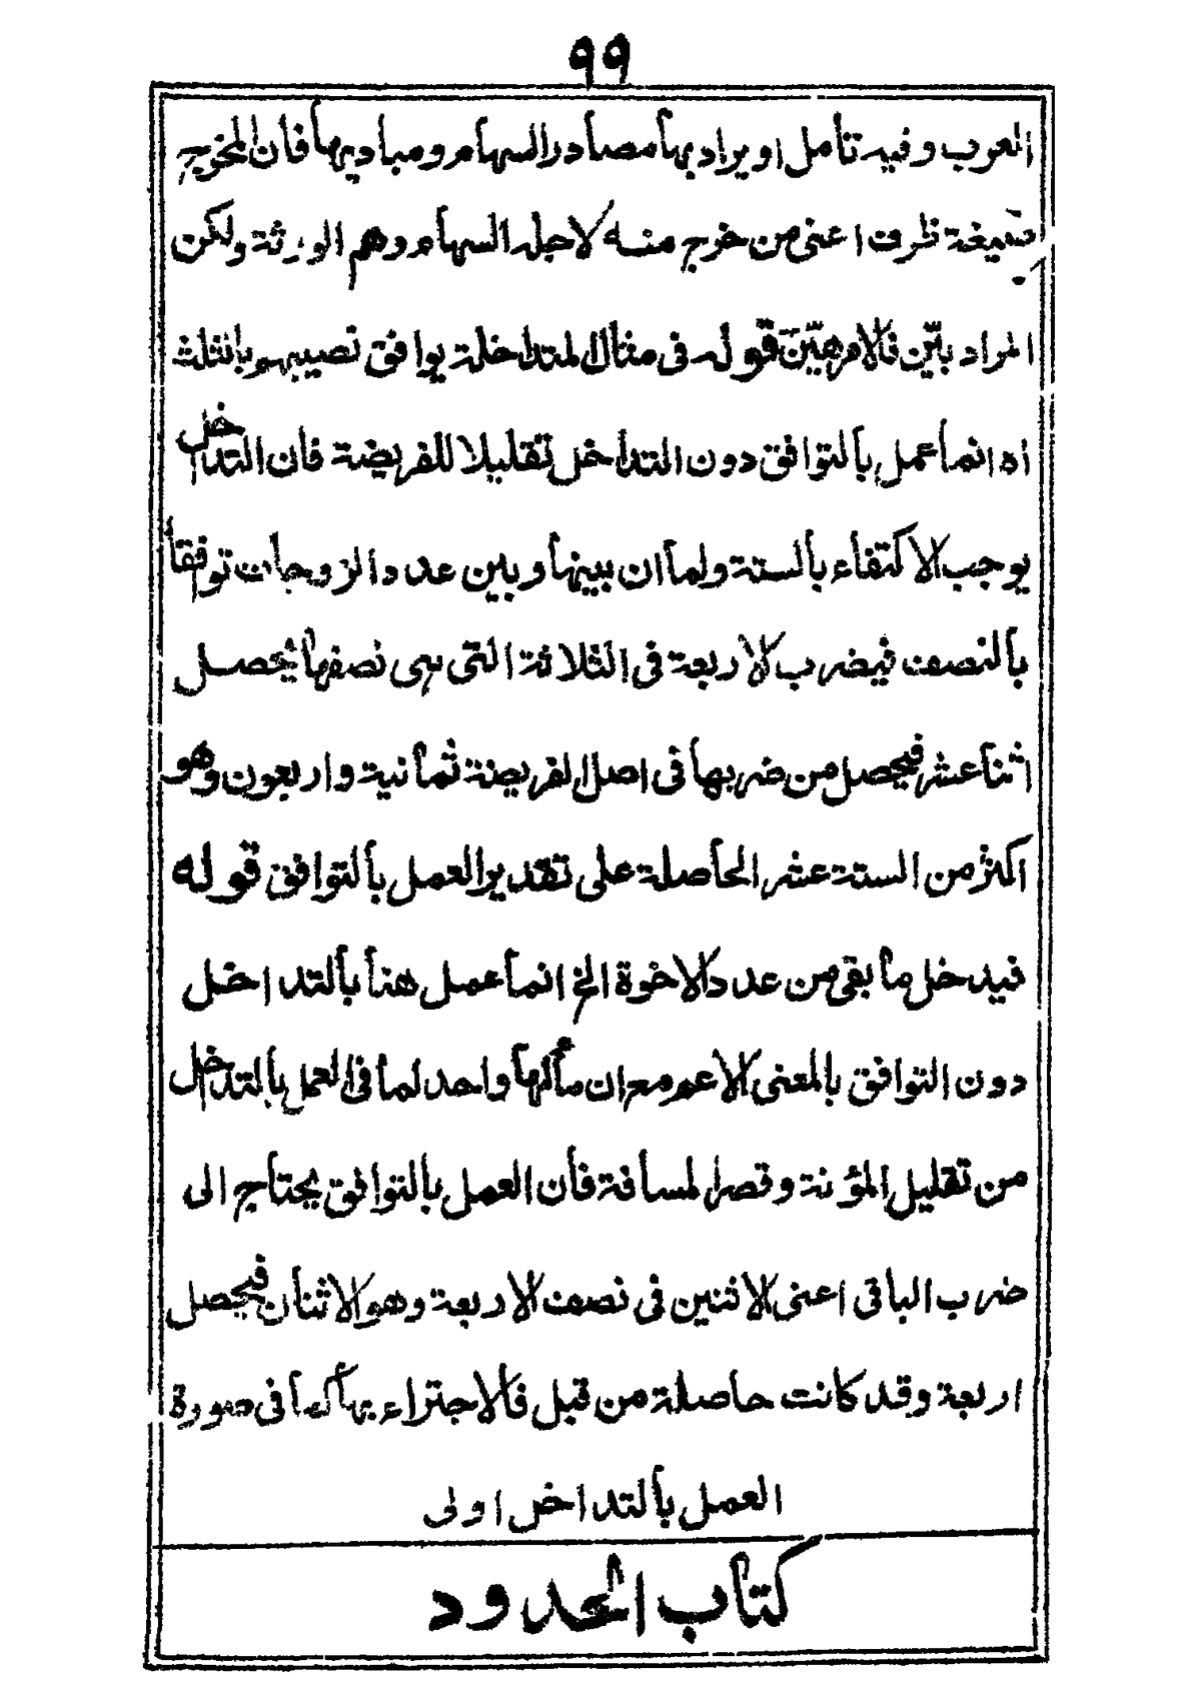 ٩٩
العرب وفيه تأمل او يراد بها مصادر السهام ومباديها فان المخرج
صيغة ظرف اعنى من خرج منه لاجله السهام وهم الورثة ولكن
المراد بيّن فالامر هيّن قوله فى مثال المتداخلة يوافق نصيبهم بالثلث
اه انما عمل بالتوافق دون التداخل تقليلا للفريضة فان التداخل
يوجب الاكتفاء بالستة ولما ان بينها وبين عدد الزوجات توافقا
بالنصف فيضرب الاربعة فى الثلاثة التى هى نصفها يحصل
اثنا عشر فيحصل من ضربها فى اصل الفريضة ثمانية واربعون وهو
اكثر من الستة عشر الحاصلة على تقدير العمل بالتوافق قوله
فيدخل ما بقى من عدد الاخوة الخ انما عمل هنا بالتداخل
دون التوافق بالمعنى الاعم مع ان مألها واحد لما فى العمل بالتداخل
من تقليل المؤنة وقصر المسافة فان العمل بالتوافق يحتاج الى
ضرب الباقى اعنى الاثنين فى نصف الاربعة وهو الاثنان فيحصل
اربعة وقد كانت حاصلة من قبل فالاجتزاء بها كما فى صورة
العمل بالتداخل اولى
كتاب الحدود